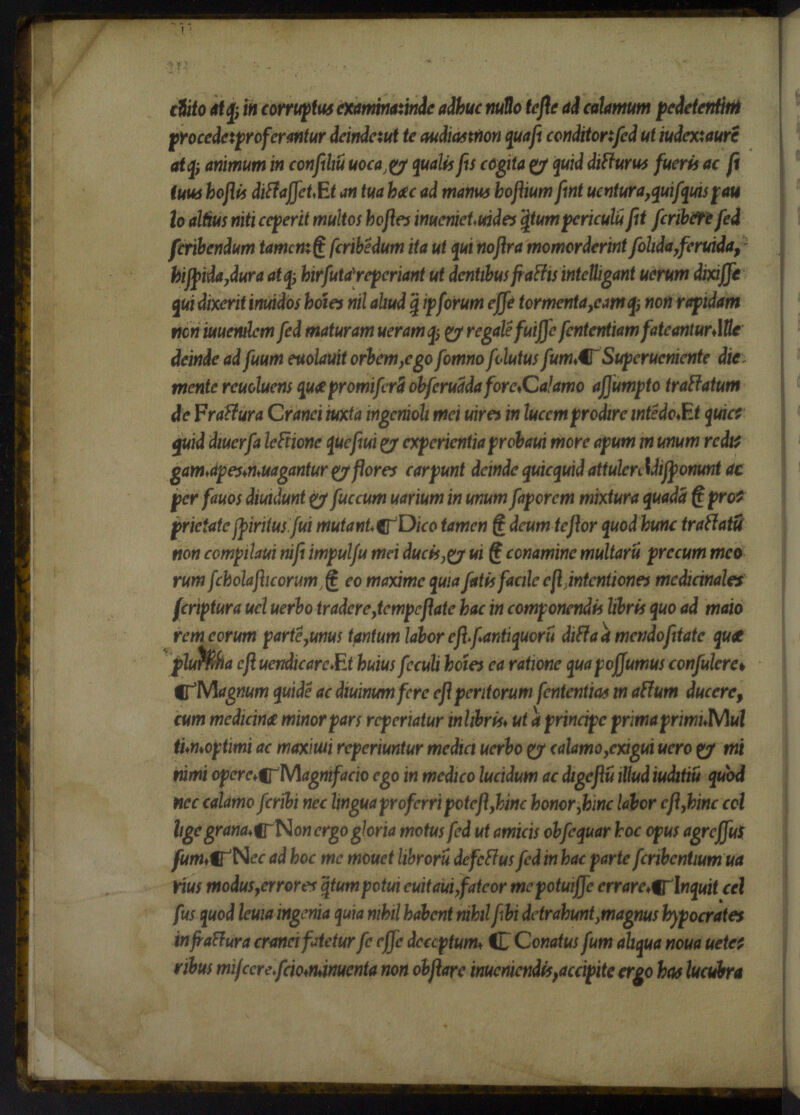 cũito atq; in corruptus examina:inde adhuc nullo teste ad calamum pedetentim
procede:proferantur deinde:ut te audias:non quasi conditor:sed ut iudex:aurē
atq; animum in consiliū uoca,& qualis sis cogita & quid dicturus fueris ac si
tuus hostis dictasset.Et an tua hæc ad manus hostium sint uentura,quisquis pau
lo altius niti ceperit multos hostes inueniet.uides q̄tum periculū sit scribere sed
scribendum tamen:& scribēdum ita ut qui nostra momorderint solida,feruida,
hispida,dura atq; hirsuta reperiant ut dentibus fractis intelligant uerum dixisse
qui dixerit inuidos hoīes nil aliud q̄ ipsorum esse tormenta,eamq; non rapidam
non iuuenilem sed maturam ueramq; & regalē fuisse sententiam fateantur.Ille
deinde ad suum euolauit orbem,ego somno solutus sum.¶ Superueniente die
mente reuoluens quæ promiserā obseruāda fore.Calamo assumpto tractatum
de Fractura Cranei iuxta ingenioli mei uires in lucem prodire intēdo.Et quic⸗
quid diuersa lectione quesiui & experientia probaui more apum in unum redi⸗
gam.apes.n.uagantur & flores carpunt deinde quicquid attulerūt disponunt ac
per fauos diuidunt & succum uarium in unum saporem mixtura quadā & pro⸗
prietate spiritus sui mutant.¶ Dico tamen & deum testor quod hunc tractatū
non compilaui nisi impulsu mei ducis,& ui & conamine multarū precum meo
rum scholasticorum,& eo maxime quia satis facile est,intentiones medicinales
scriptura uel uerbo tradere,tempestate hac in componendis libris quo ad maio
rem eorum partē,unus tantum labor est.s.antiquorū dicta a mendositate quæ
plurima est uendicare.Et huius seculi hoīes ea ratione qua possumus consulere.
¶ Magnum quidē ac diuinum fere est peritorum sententias in actum ducere,
cum medicinæ minor pars reperiatur in libris. ut a principe prima primi.Mul
ti.n.optimi ac maximi reperiuntur medici uerbo & calamo,exigui uero & mi
nimi opere.¶ Magnifacio ego in medico lucidum ac digestū illud iuditiū quod
nec calamo scribi nec lingua proferri potest,hinc honor,hinc labor est,hinc col
lige grana.¶ Non ergo gloria motus sed ut amicis obsequar hoc opus agressus
sum.¶ Nec ad hoc me mouet librorū defectus sed in hac parte scribentium ua
rius modus,errores q̄tum potui euitaui,fateor me potuisse errare.¶ Inquit cel
sus quod leuia ingenia quia nihil habent nihil sibi detrahunt,magnus hypocrates
in fractura cranei fatetur se esse deceptum. ¶ Conatus sum aliqua noua uete⸗
ribus miscere.scio.n.inuenta non obstare inueniendis,accipite ergo has lucubra